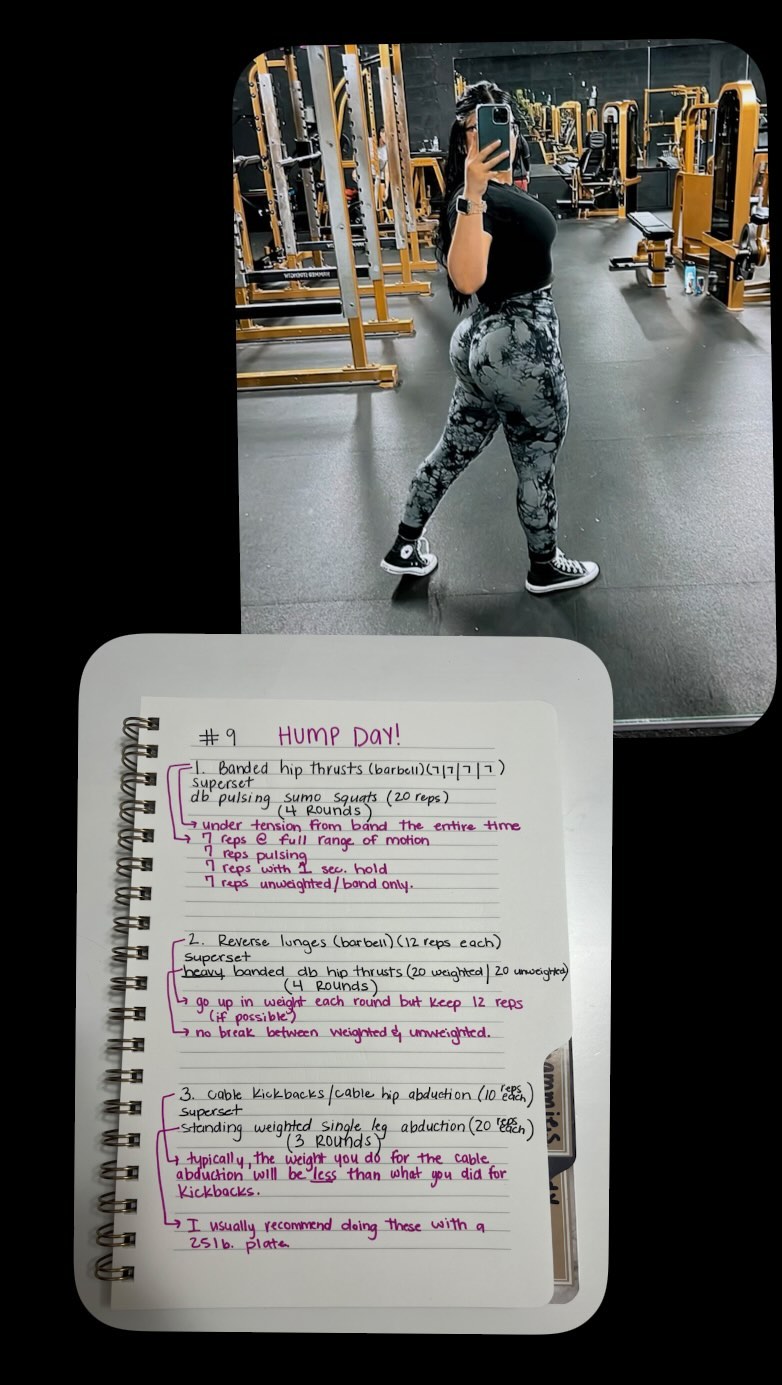 # 9 HUMP DAY!
1. Banded hip thrusts (barbell)(7|7|7|7)
superset
db pulsing sumo squats (20 reps)
(4 Rounds)
under tension from band the entire time
7 reps @ full range of motion
7 reps pulsing
7 reps with 1 sec. hold
7 reps unweighted/band only.
2. Reverse lunges (barbell)(12 reps each)
superset
heavy banded db hip thrusts (20 weighted | 20 unweighted)
(4 Rounds)
go up in weight each round but keep 12 reps
(if possible)
no break between weighted & unweighted.
3. Cable Kickbacks/cable hip abduction (10 reps each)
superset
standing weighted single leg abduction (20 reps each)
(3 Rounds)
typically, the weight you do for the cable
abduction will be less than what you did for
Kickbacks.
I usually recommend doing these with a
25lb. plate